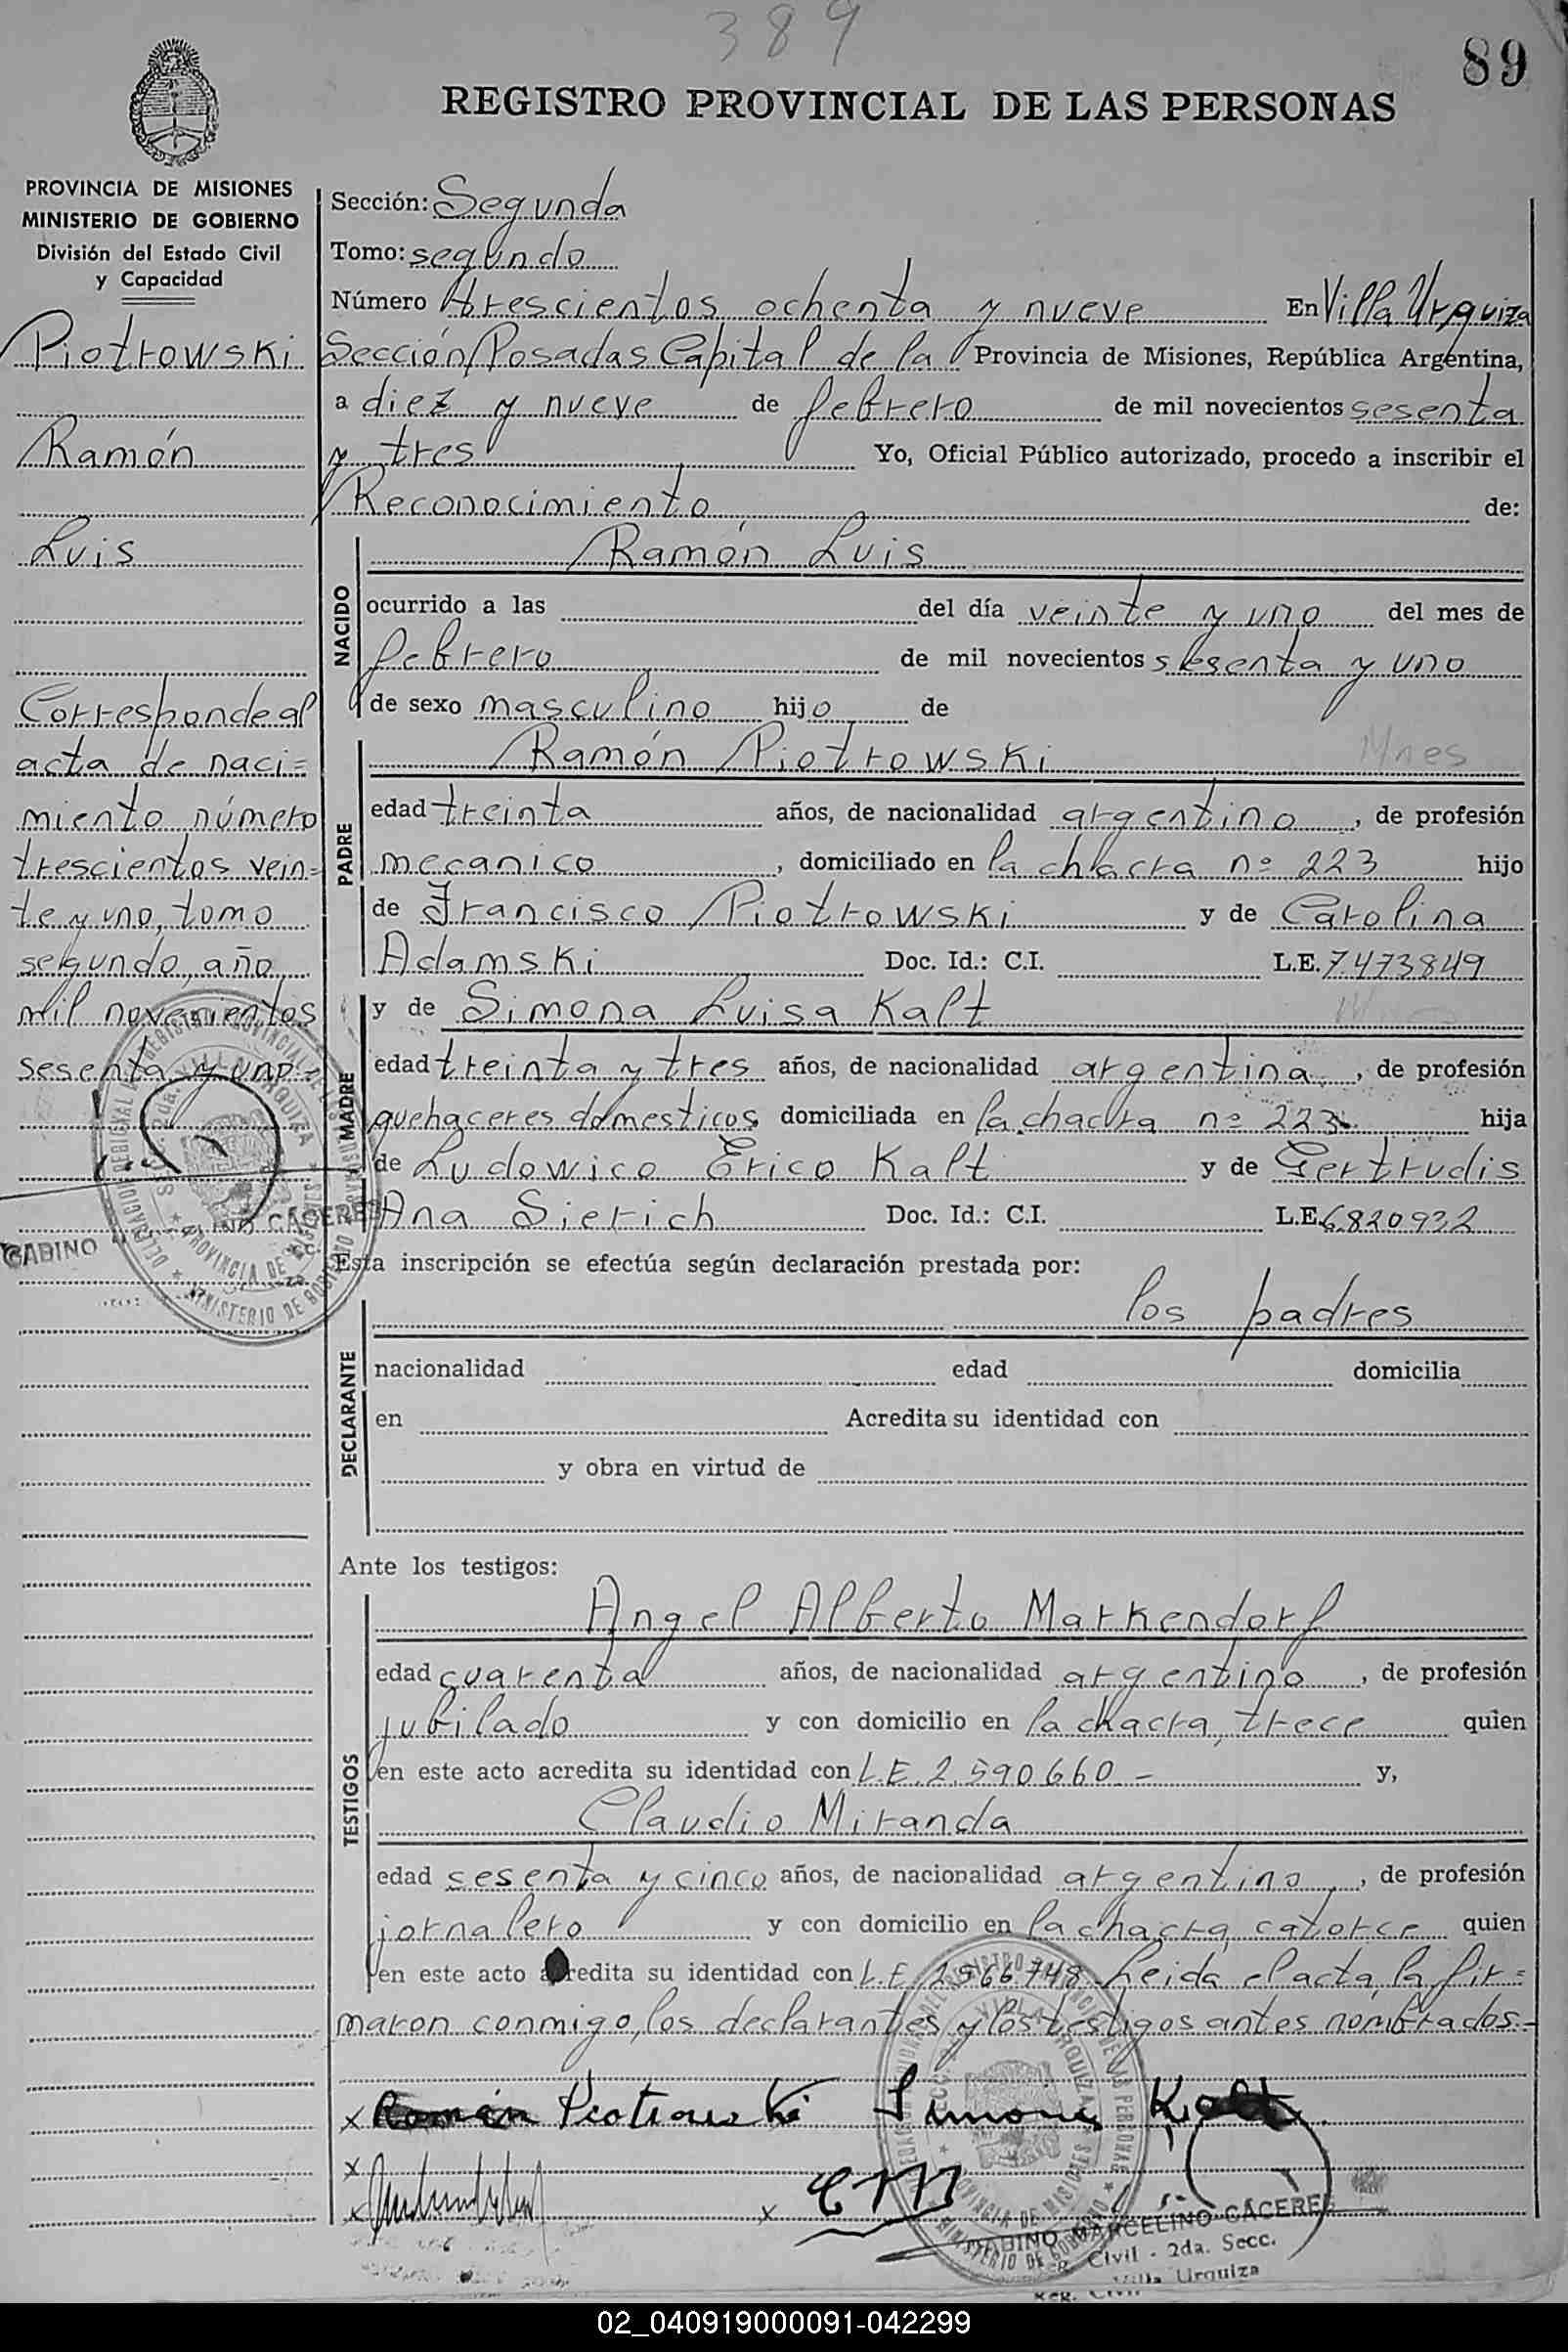 389
89
REGISTRO PROVINCIAL DE LAS PERSONAS
PROVINCIA DE MISIONES
MINISTERIO DE GOBIERNO
División del Estado Civil
y Capacidad
Piotrowski
Ramón
Luis
Corresponde al
acta de naci=
miento número
trescientos vein=
te y uno, tomo
segundo, año
mil novecientos
sesenta y uno=
GABINO CACERES
Sección: Segunda
Tomo: segundo
Número trescientos ochenta y nueve En Villa Urquiza
Sección Posadas Capital de la Provincia de Misiones, República Argentina,
a diez y nueve de febrero de mil novecientos sesenta
y tres Yo, Oficial Público autorizado, procedo a inscribir el
Reconocimiento de:
NACIDO
Ramón Luis
ocurrido a las del día veinte y uno del mes de
febrero de mil novecientos sesenta y uno
de sexo masculino hijo de
PADRE
Ramón Piotrowski Mnes
edad treinta años, de nacionalidad argentino, de profesión
mecanico, domiciliado en la chacra nº 223 hijo
de Francisco Piotrowski y de Carolina
Adamski Doc. Id.: C.I. L.E. 7473849
MADRE
y de Simona Luisa Kalt
edad treinta y tres años, de nacionalidad argentina, de profesión
quehaceres domesticos domiciliada en la chacra nº 223 hija
de Ludowico Erico Kalt y de Gertrudis
Ana Sierich Doc. Id.: C.I. L.E. 6.820932
Esta inscripción se efectúa según declaración prestada por:
DECLARANTE
los padres
nacionalidad edad domicilia
en Acredita su identidad con
y obra en virtud de
Ante los testigos:
TESTIGOS
Angel Alberto Markendorf
edad cuarenta años, de nacionalidad argentino, de profesión
jubilado y con domicilio en la chacra, trece quien
en este acto acredita su identidad con L.E. 2.590660- y,
Claudio Miranda
edad sesenta y cinco años, de nacionalidad argentino, de profesión
jornalero y con domicilio en la chacra catorce quien
en este acto acredita su identidad con L.E. 2566748 Leida el acta, la fir=
maron conmigo, los declarantes y los testigos antes nombrados.-
x Román Piotrowski Simona Kalt
x
x x CM
GABINO MARCELINO CACERES
Civil - 2da. Secc.
Villa Urquiza
02_040919000091-042299